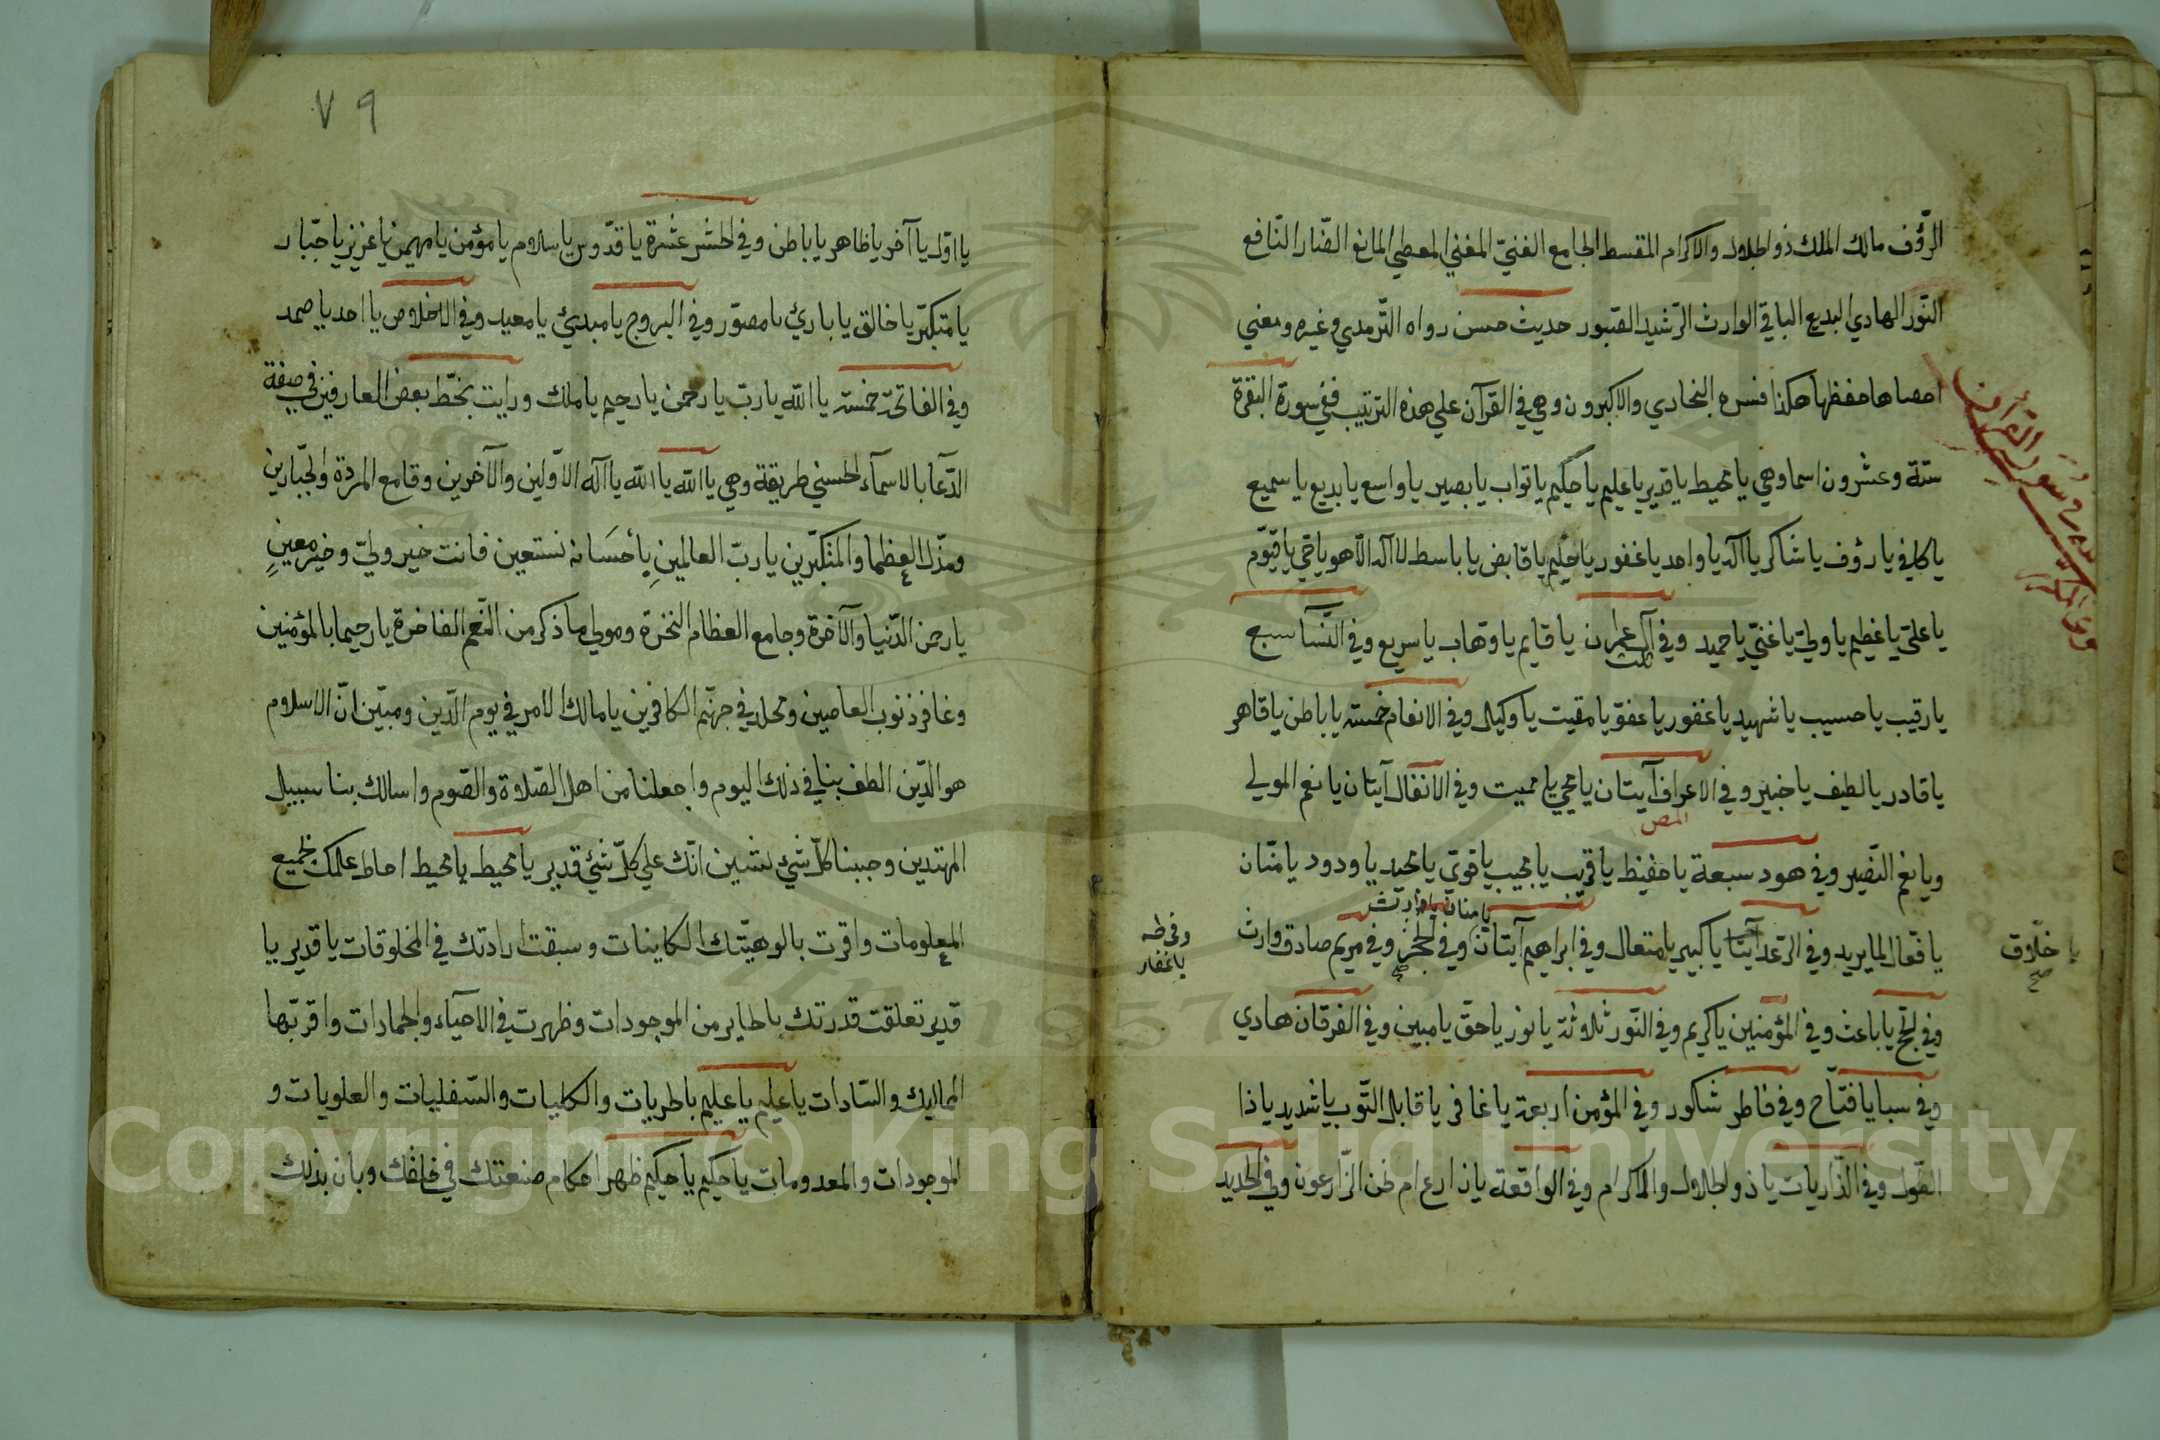 الرّؤف مالك الملك ذو الجلال والاكرام المقسط الجامع الغنيّ المغني المعطي المانع الضار النّافع
النّور الهادي البديع الباقي الوارث الرّشيد الصّبور حديث حسن رواه التّرمذي وغيره ومعني
احصاها حفظها هكذا فسره البخاري والاكبرون وهي في القرآن علي هذه الترتيب ففي سورة البقرة
ستة وعشرون اسما وهي يا محيط يا قدير يا عليم يا حكيم يا تواب يا بصير يا واسع يا بديع يا سميع
يا كافي يا رؤف يا شاكر يا اله يا واحد يا غفور يا حليم يا قابض يا باسط لا اله الا هو يا حي يا قيّوم
يا عليّ يا عظيم يا وليّ يا غنيّ يا حميد وفي آل عمران يا قايم يا وهاب يا سريع وفي النّسآ سبع
ثلث
يا رقيب يا حسيب يا شهيد يا غفور يا عفوّ يا مقيت يا وكيل وفي الانعام خمسة يا باطن يا قاهر
يا قادر يا لطيف يا خبير وفي الاعراف آيتان يا محي يا مميت وفي الانفال آيتان يا نعم المولي
المص
ويا نعم النّصير وفي هود سبعة يا حفيظ يا قريب يا مجيب يا قويّ يا مجيد يا ودود يا منّان
يا فعّال لما يريد وفي الرّعد آيتا يا كبير يا متعال وفي ابراهيم آيتان وفي الحجر وفي مريم صادق وارث
يا منان يا وارث
يا خلّاق
صح
وفي طه
يا غفار
وفي الحج يا باعث وفي المؤمنين يا كريم وفي النّور ثلاثة يا نور يا حقّ يا مبين وفي الفرقان هادي
وفي سبا يا فتّاح وفي فاطر شكور وفي المؤمن اربعة يا غافر يا قابل التّوب يا شديد يا ذا
الطّول وفي الذّاريات يا ذو الجلال والاكرام وفي الواقعة يا زارع ام نحن الزّارعون وفي الحديد
٧٩
يا اوّل يا آخر يا ظاهر يا باطن وفي الحشر عشرة يا قدّوس يا سلام يا مؤمن يا مهيمن يا عزيز يا جبّار
يا متكبّر يا خالق يا بارئ يا مصوّر وفي البروج يا مبدئ يا معيد وفي الاخلاص يا احد يا صمد
وفي الفاتحة خمسة يا الله يا ربّ يا رحمن يا رحيم يا ملك ورايت بخطّ بعض العارفين في صفة
الدّعآ بالاسمآء الحسني طريقة وهي يا الله يا الله يا اله الاوّلين والآخرين وقامع المردة والجبّارين
ومذلّ العظما والمتكبّرين يا ربّ العالمين يا حسانه نستعين فانت خير وليّ وخير معين
يا رحمن الدّنيا والآخرة وجامع العظام النخرة ومولي ما ذكر من النّعم الفاخرة يا رحيما بالمؤمنين
وغافر ذنوب العاصين ومخلد في جهنّم الكافرين يا مالك الامر في يوم الدّين ومبيّن انّ الاسلام
هو الدّين الطف بنا في ذلك اليوم واجعلنا من اهل الصّلاة والصّوم واسالك بنا سبيل
المهتدين وجنبنا كلّ شيء يشين انّك علي كلّ شيء قدير يا محيط يا محيط احاط علمك بجميع
المعلومات واقرت بالوهيّتك الكاينات وسبقت ارادتك في المخلوقات يا قدير يا
قدير تعلقت قدرتك باطاير من الموجودات وظهرت في الاحيآء والجمادات واقر بّها
المماليك والسّادات يا عليم يا عليم بالجزئيات والكليات والسّفليات والعلويات و
الموجودات والمعدومات يا حكيم يا حكيم ظهر احكام صنعتك في خلقك وبان بذلك
Copyright © King Saud University
1957